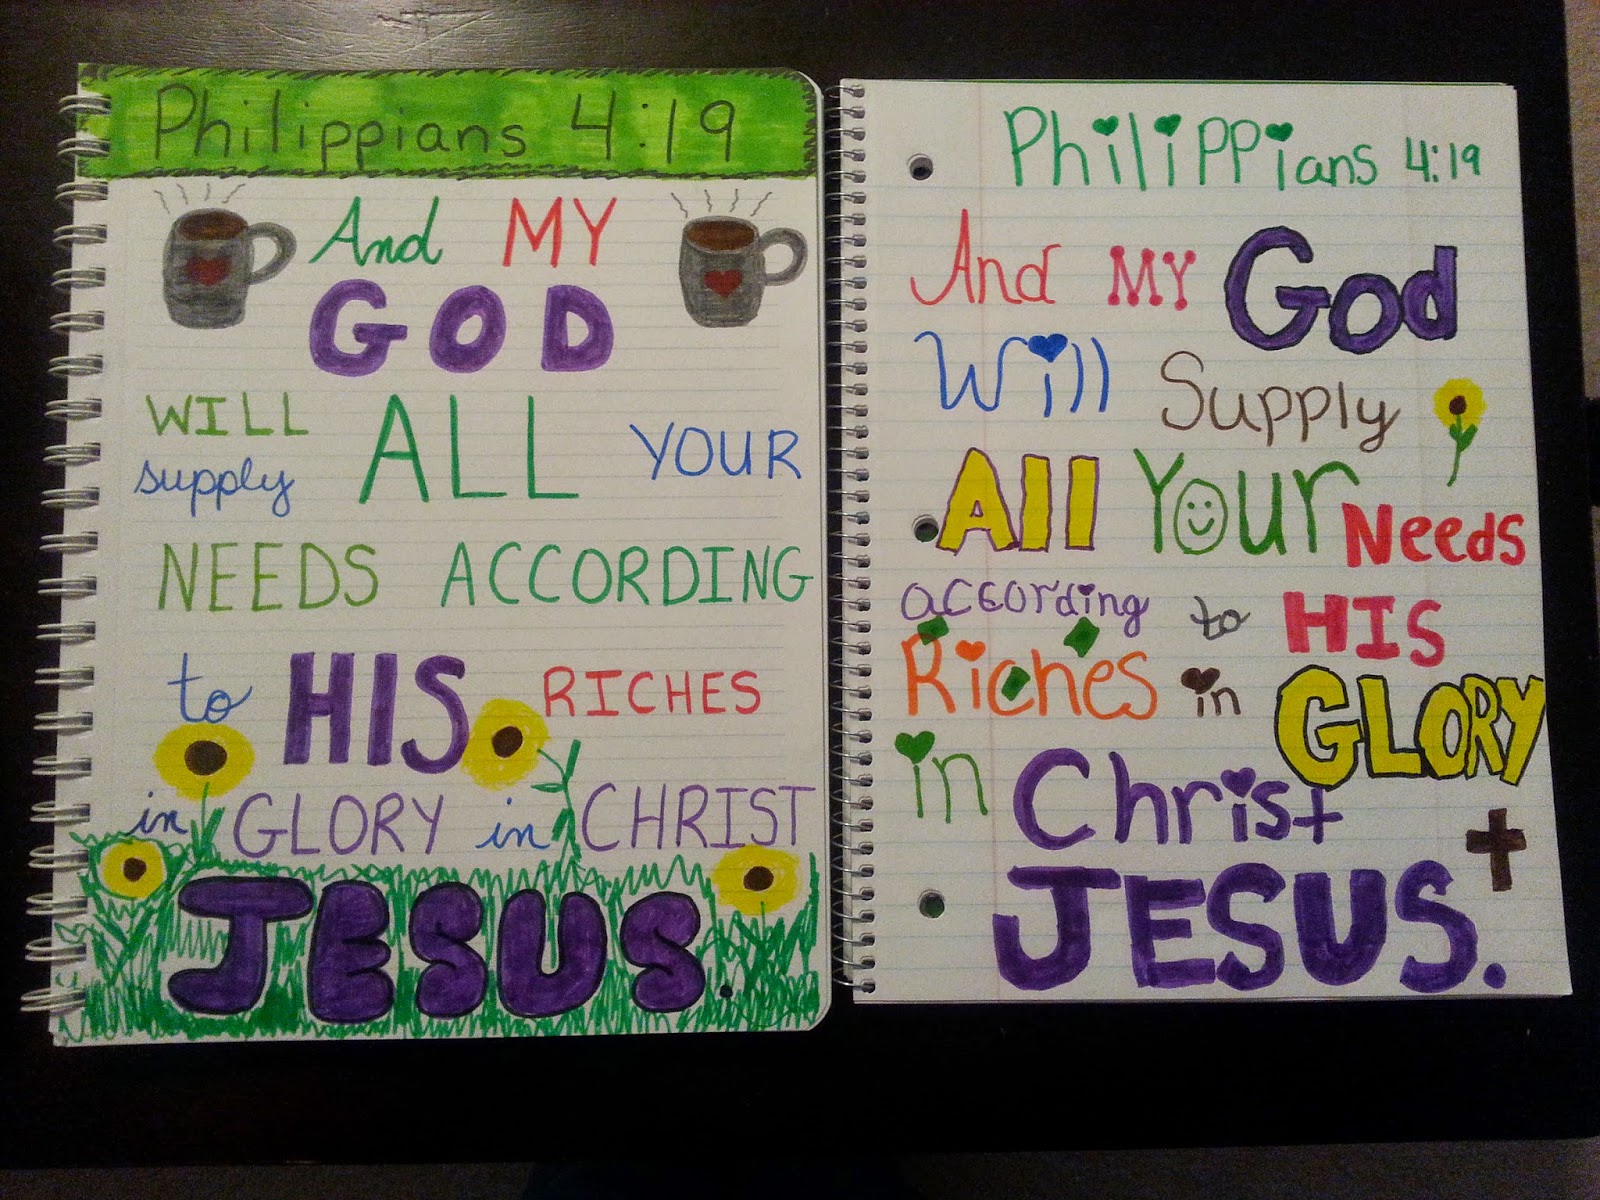 Philippians 4:19
And MY
GOD
WILL supply ALL YOUR
NEEDS ACCORDING
to HIS RICHES
in GLORY in CHRIST
JESUS.
Philippians 4:19
And MY God
Will Supply
All Your Needs
according to HIS
Riches in GLORY
in Christ
JESUS.